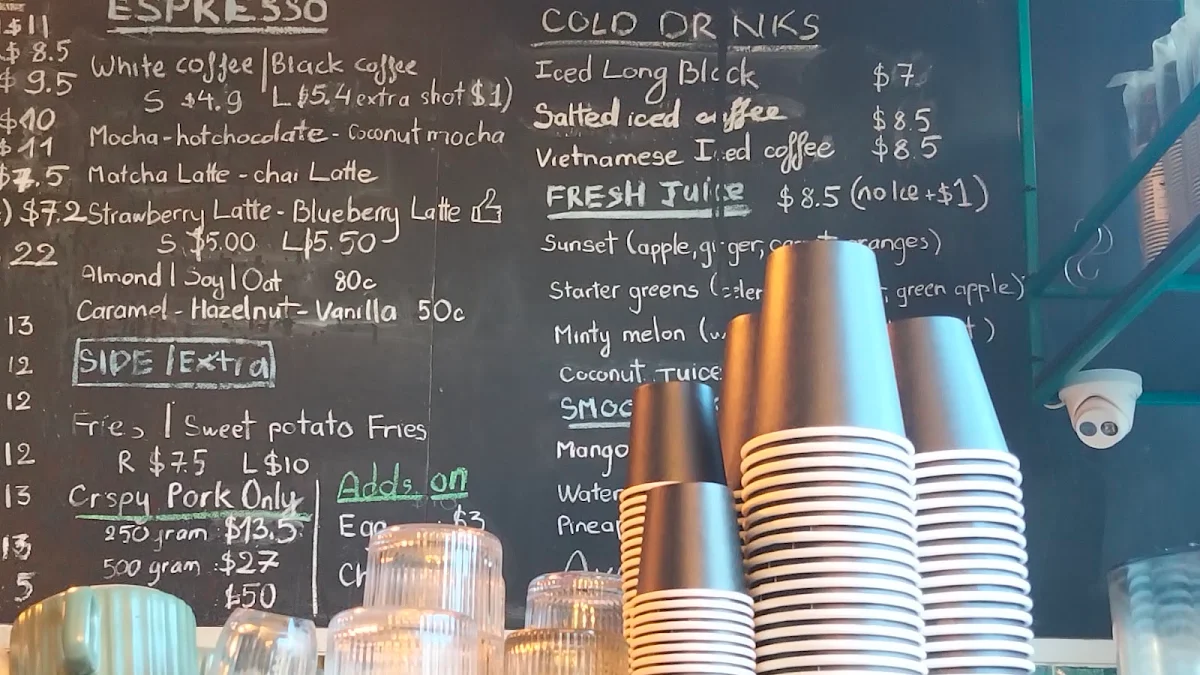 $11
$8.5
$9.5
$10
$11
$7.5
$7.2
22
13
12
12
12
13
13
5
ESPRESSO
White coffee | Black coffee
S $4.9 L $5.4 extra shot $1)
Mocha - hotchocolate - Coconut mocha
Matcha Latte - chai Latte
Strawberry Latte - Blueberry Latte
S $5.00 L $5.50
Almond | Soy | Oat 80c
Caramel - Hazelnut - Vanilla 50c
SIDE / Extra
Fries | Sweet potato Fries
R $7.5 L $10
Crspy Pork Only
250 gram $13.5
500 gram $27
$50
Adds on
Egg $3
COLD DRINKS
Iced Long Black $7
Salted iced coffee $8.5
Vietnamese Iced coffee $8.5
FRESH Juice $8.5 (no Ice +$1)
Sunset (apple, ginger, oranges)
Starter greens ( green apple)
Minty melon (
Coconut Juice
Mango
Water